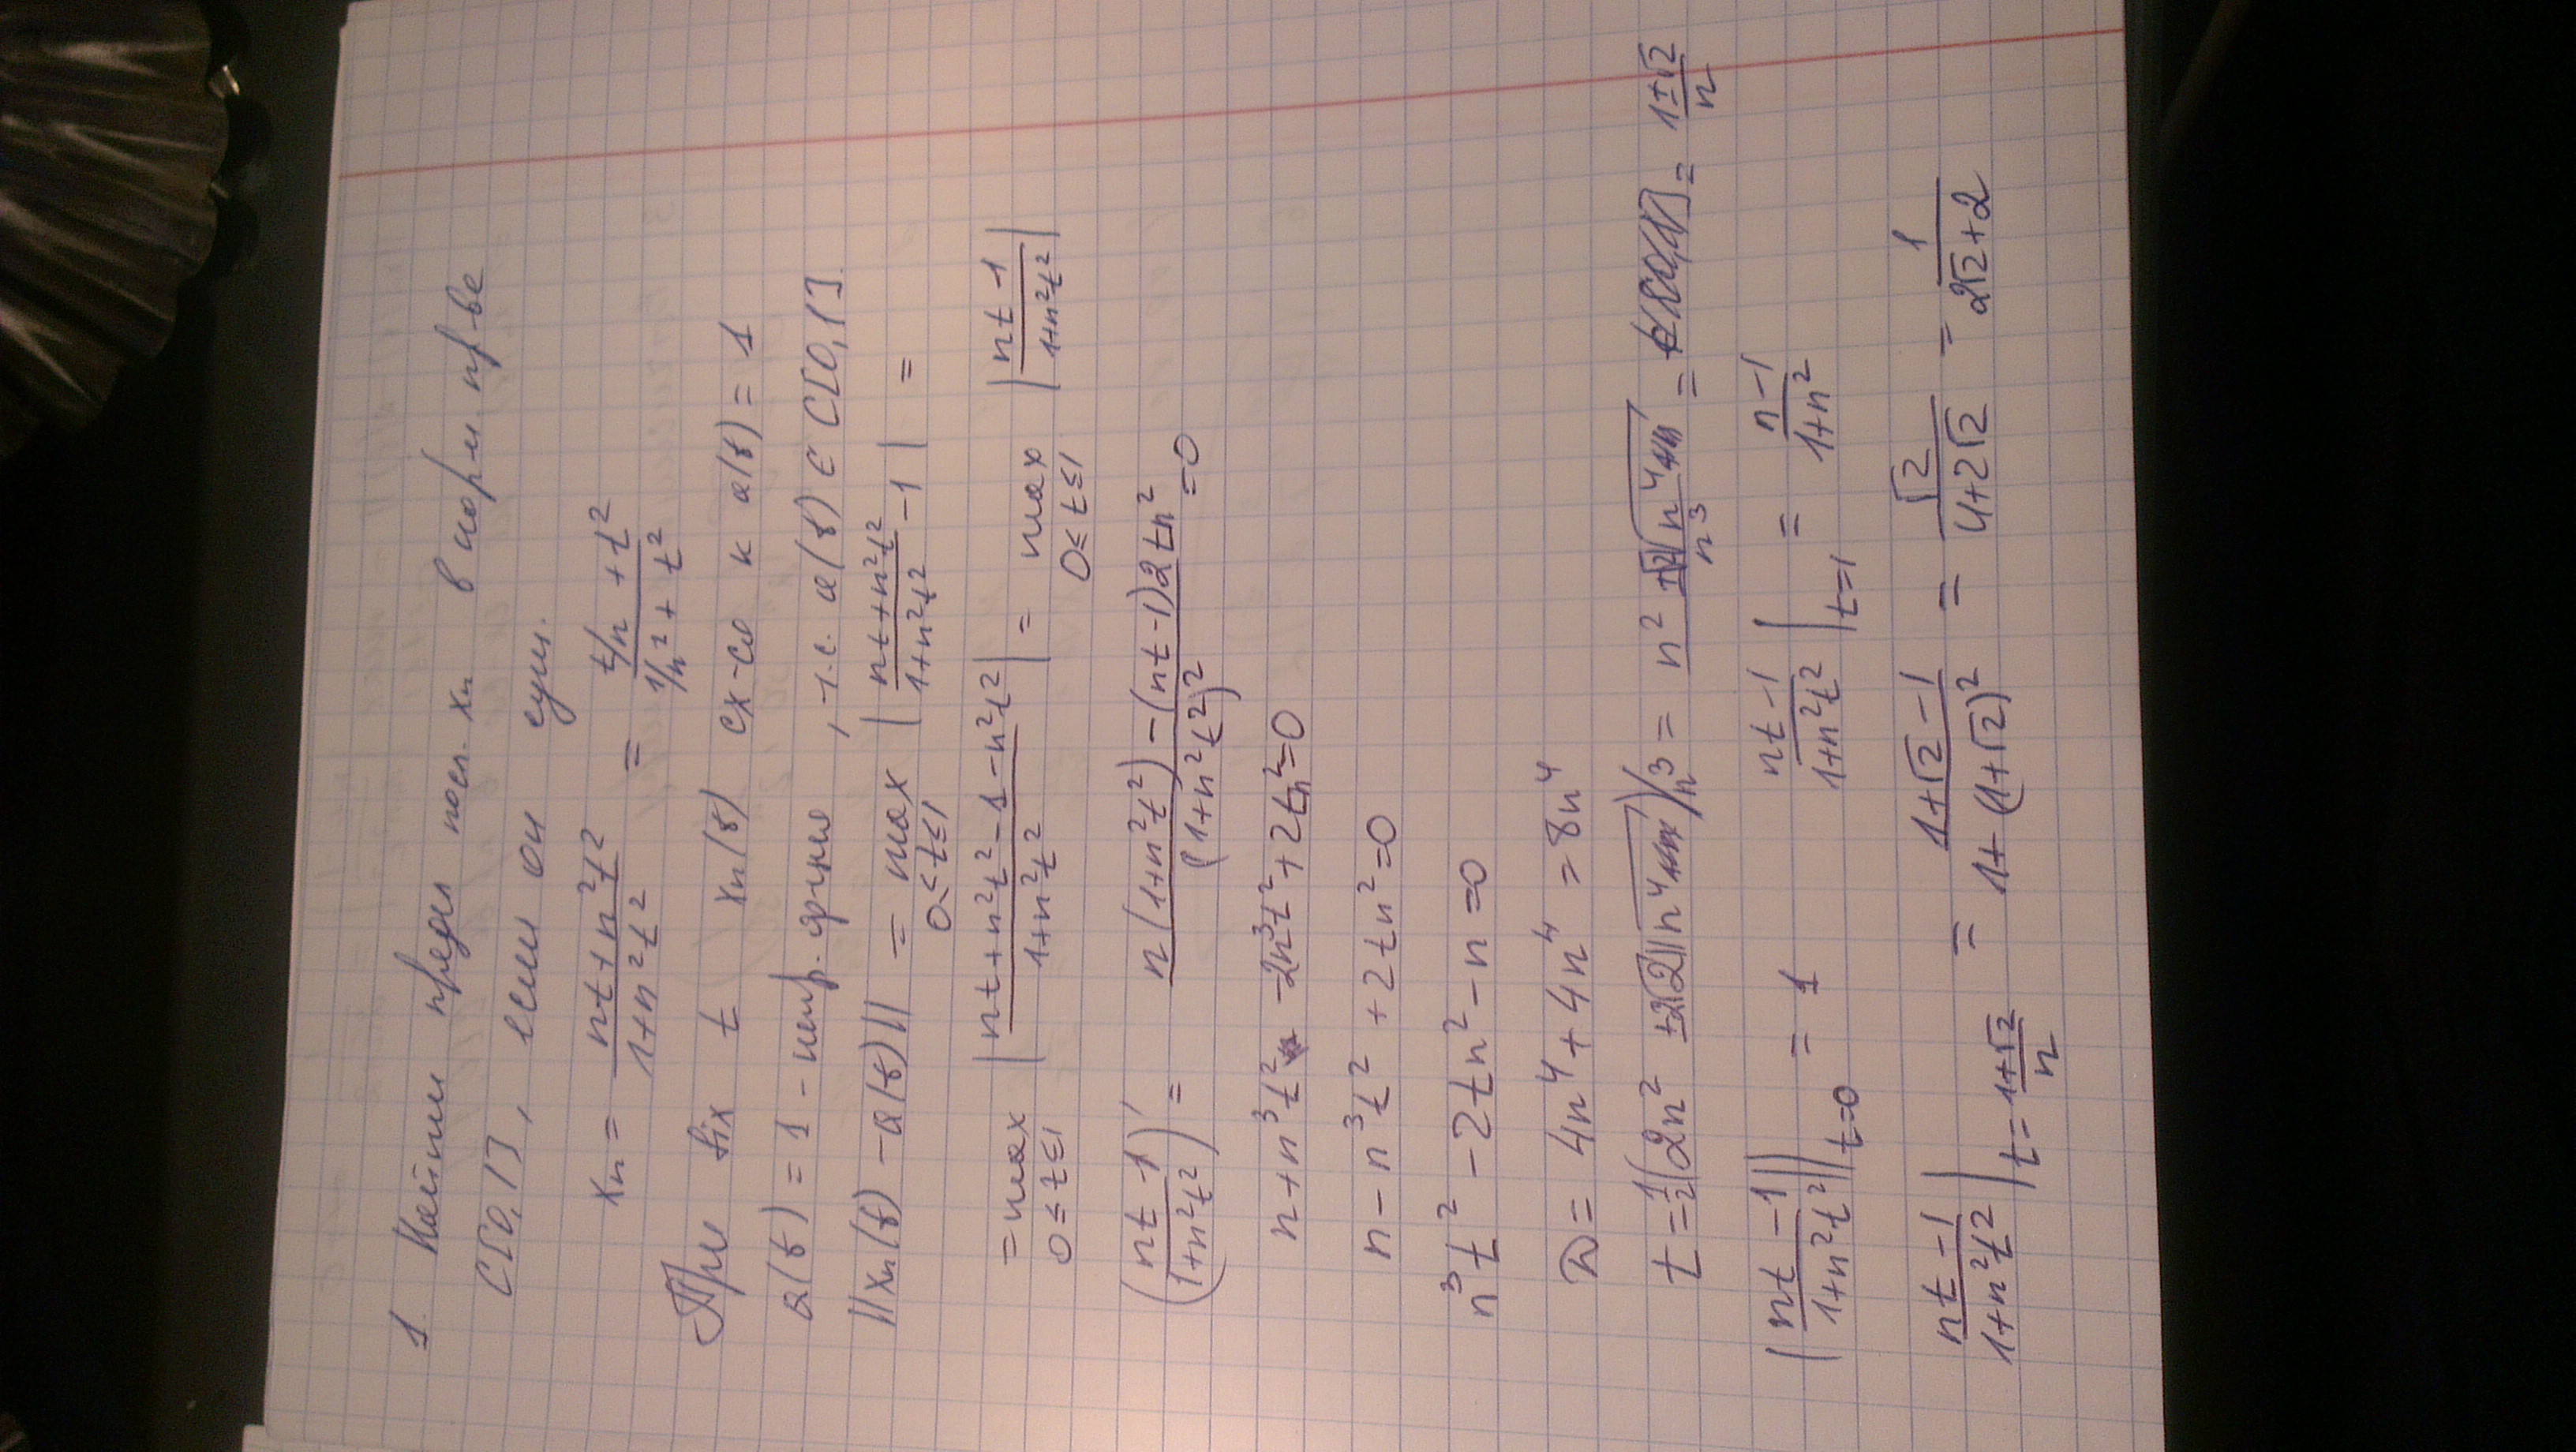 1. Найти предел посл. xn в норм. пр-ве
C[0,1], если он сущ.
xn = (nt + n²t²)/(1+n²t²) = (t/n + t²)/(1/n² + t²)
При fix t xn(t) сх-ся к a(t) = 1
a(t) = 1 - непр. функ, т.е. a(t) ∈ C[0,1]
||xn(t) - a(t)|| = max 0≤t≤1 |(nt+n²t²)/(1+n²t²) - 1| =
= max 0≤t≤1 |(nt+n²t²-1-n²t²)/(1+n²t²)| = max 0≤t≤1 |(nt-1)/(1+n²t²)|
((nt-1)/(1+n²t²))' = (n(1+n²t²)-(nt-1)2tn²)/(1+n²t²)² = 0
n+n³t² - 2n³t² + 2tn² = 0
n - n³t² + 2tn² = 0
n³t² - 2tn² - n = 0
D = 4n⁴ + 4n⁴ = 8n⁴
t = 1/2(2n² ± 2√2 n⁴)/n³ = (n² ± √2 n⁴)/n³ = = (1±√2)/n
|(nt-1)/(1+n²t²)| t=0 = 1 (nt-1)/(1+n²t²)| t=1 = (n-1)/(1+n²)
(nt-1)/(1+n²t²)| t=(1+√2)/n = (1+√2-1)/(1+(1+√2)²) = √2/(4+2√2) = 1/(2√2+2)